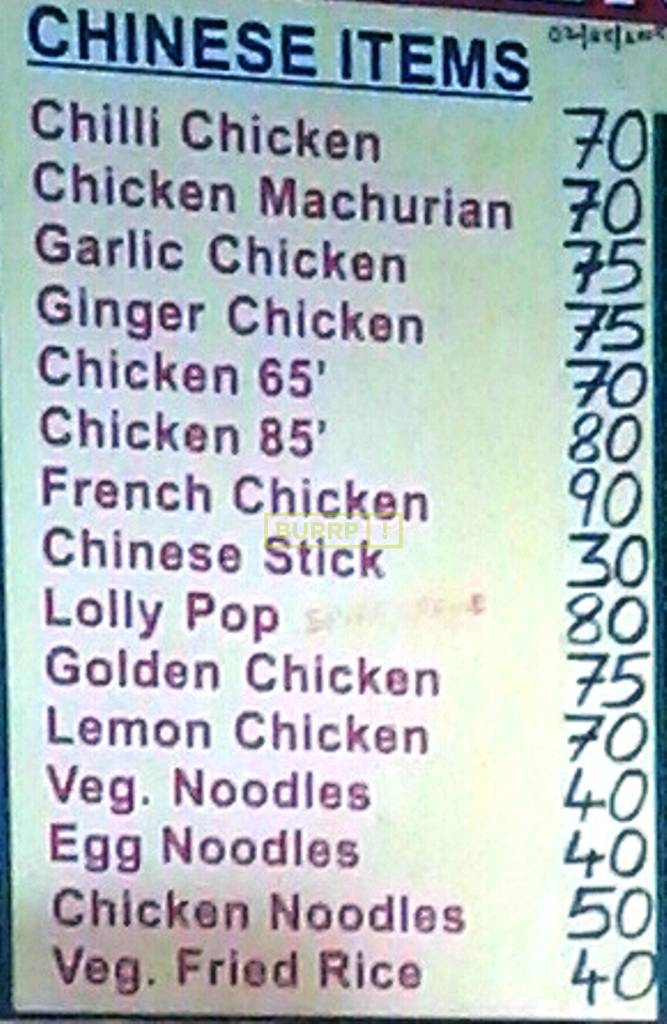 CHINESE ITEMS
Chilli Chicken 70
Chicken Machurian 70
Garlic Chicken 75
Ginger Chicken 75
Chicken 65' 70
Chicken 85' 80
French Chicken 90
BURRP!
Chinese Stick 30
Lolly Pop 80
Golden Chicken 75
Lemon Chicken 70
Veg. Noodles 40
Egg Noodles 40
Chicken Noodles 50
Veg. Fried Rice 40